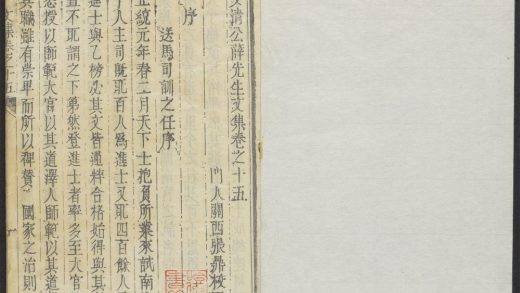 文清公薛先生文集卷之十五
門人關西張鼎校
序
送馬司訓之任序
正統元年春二月天下士抱負所業來試南
千人主司既取百人爲進士又取四百餘人
進士與乙榜必其文皆通粹合格始得與其
不取謂之下第然登進士者率多至大官
授以師範大官以其道澤人師範以其道
其職雖有崇卑而所以裨贊 國家之治則
文集卷之十五